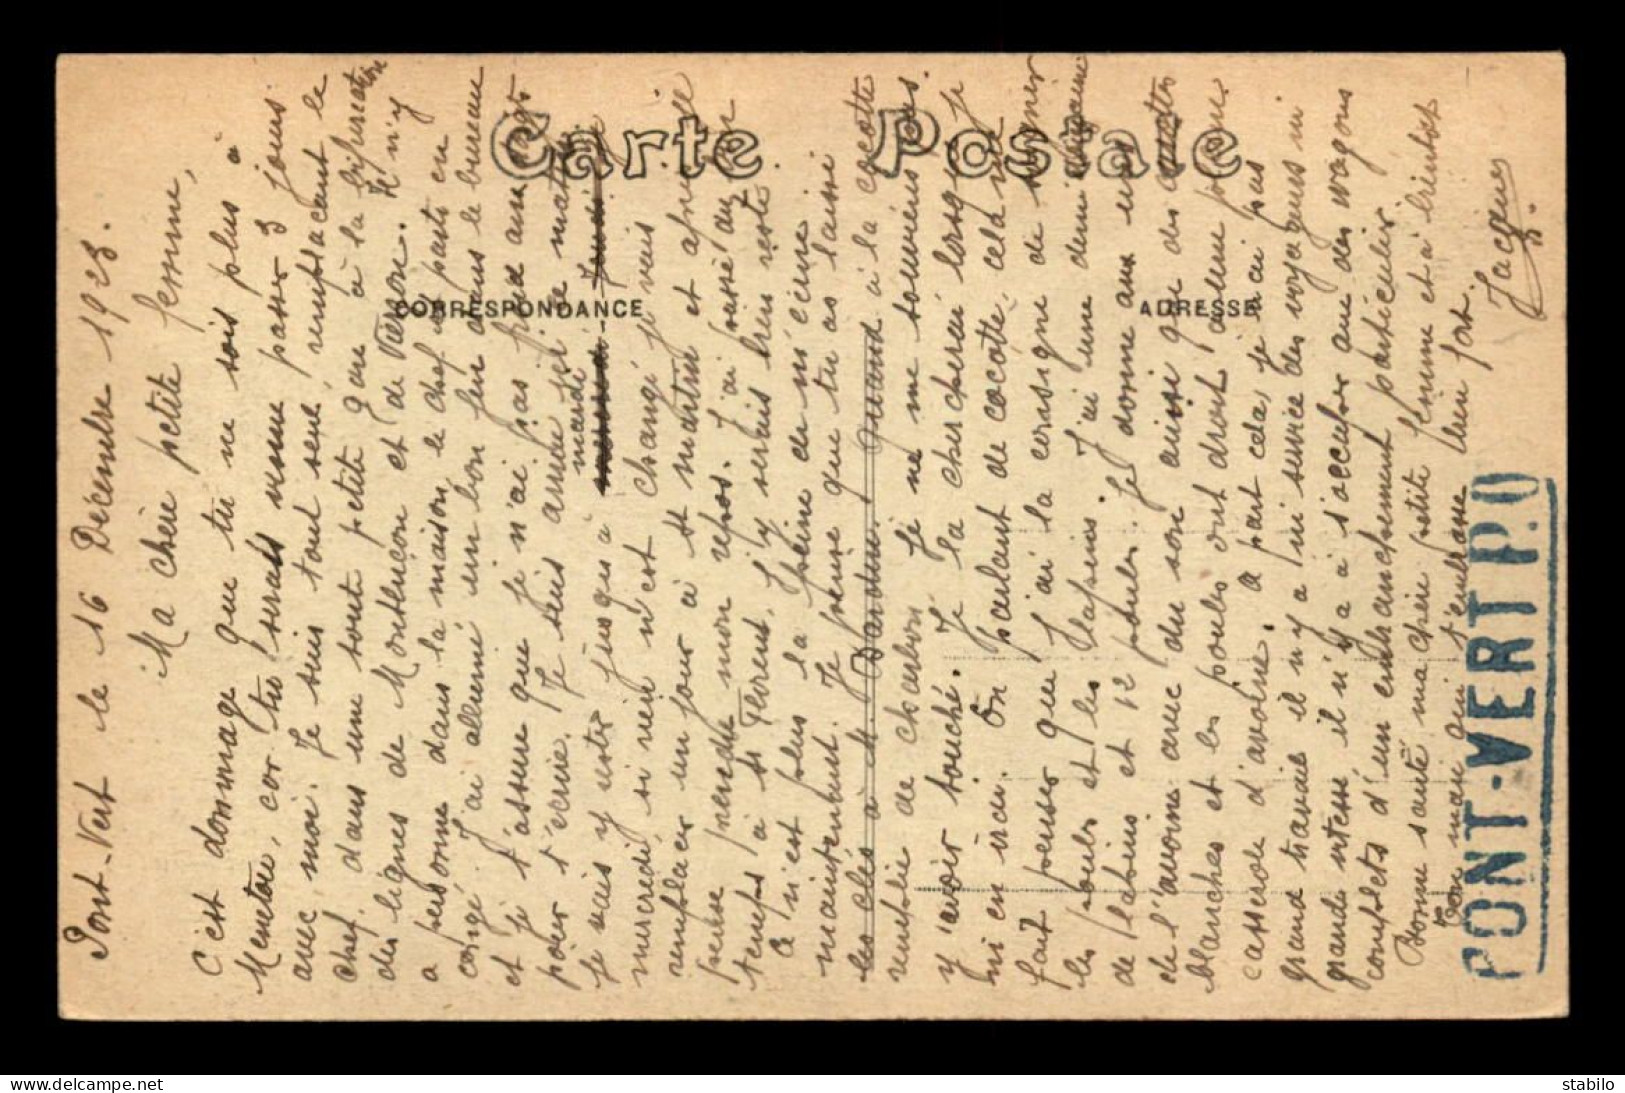 Pont-Vert le 16 Décembre 1923.
Ma chère petite femme,
C'est dommage que tu ne sois plus à
Menetou, car tu serais venue passer 3 jours
avec moi. Je suis tout seul, remplacant le
chef, dans une toute petite gare à la bifurcation
des lignes de Montluçon et de Vierzon. Il n'y
a personne dans la maison, le chef est parti en
congé. J'ai allumé un bon feu dans le bureau
et je t'assure que je n'ai pas froid aux doigts
pour t'écrire. Je suis arrivé ici ce matin.
Je vais y rester jusqu'à mardi
mercredi, si rien n'est changé je vais
remplacer un jour à St Martin et après je
pense prendre mon repos. J'ai passé au bon
temps à St Florent, j'y serais bien resté
Ce n'est plus la peine de m'écrire
maintenant. Je pense que tu as laissé
les clés à M. Dardeau quand à la cocotte
remplie de charbon je ne me souviens pas
y avoir touché. Je la chercherai lorsque je
irai. En parlant de cocotte cela me
fait penser que j'ai la consigne de soigner
les poules et les lapins. J'ai une demi douzaine
de lapins et 12 poules. Je donne aux uns
de l'avoine avec du son ainsi que des carottes
blanches et les poules ont droit à une pleine
casserole d'avoine. A part cela, je n'ai pas
grand travail il n'y a ni service des voyageurs ni
grande vitesse il n'y a à s'occuper que des wagons
complets d'un embranchement particulier.
Bonne santé ma chère petite femme et à bientôt
Ton mari qui t'embrasse bien fort.
Jacques
Carte Postale
CORRESPONDANCE
ADRESSE
PONT-VERT P.O
delcampe.net
stabilo